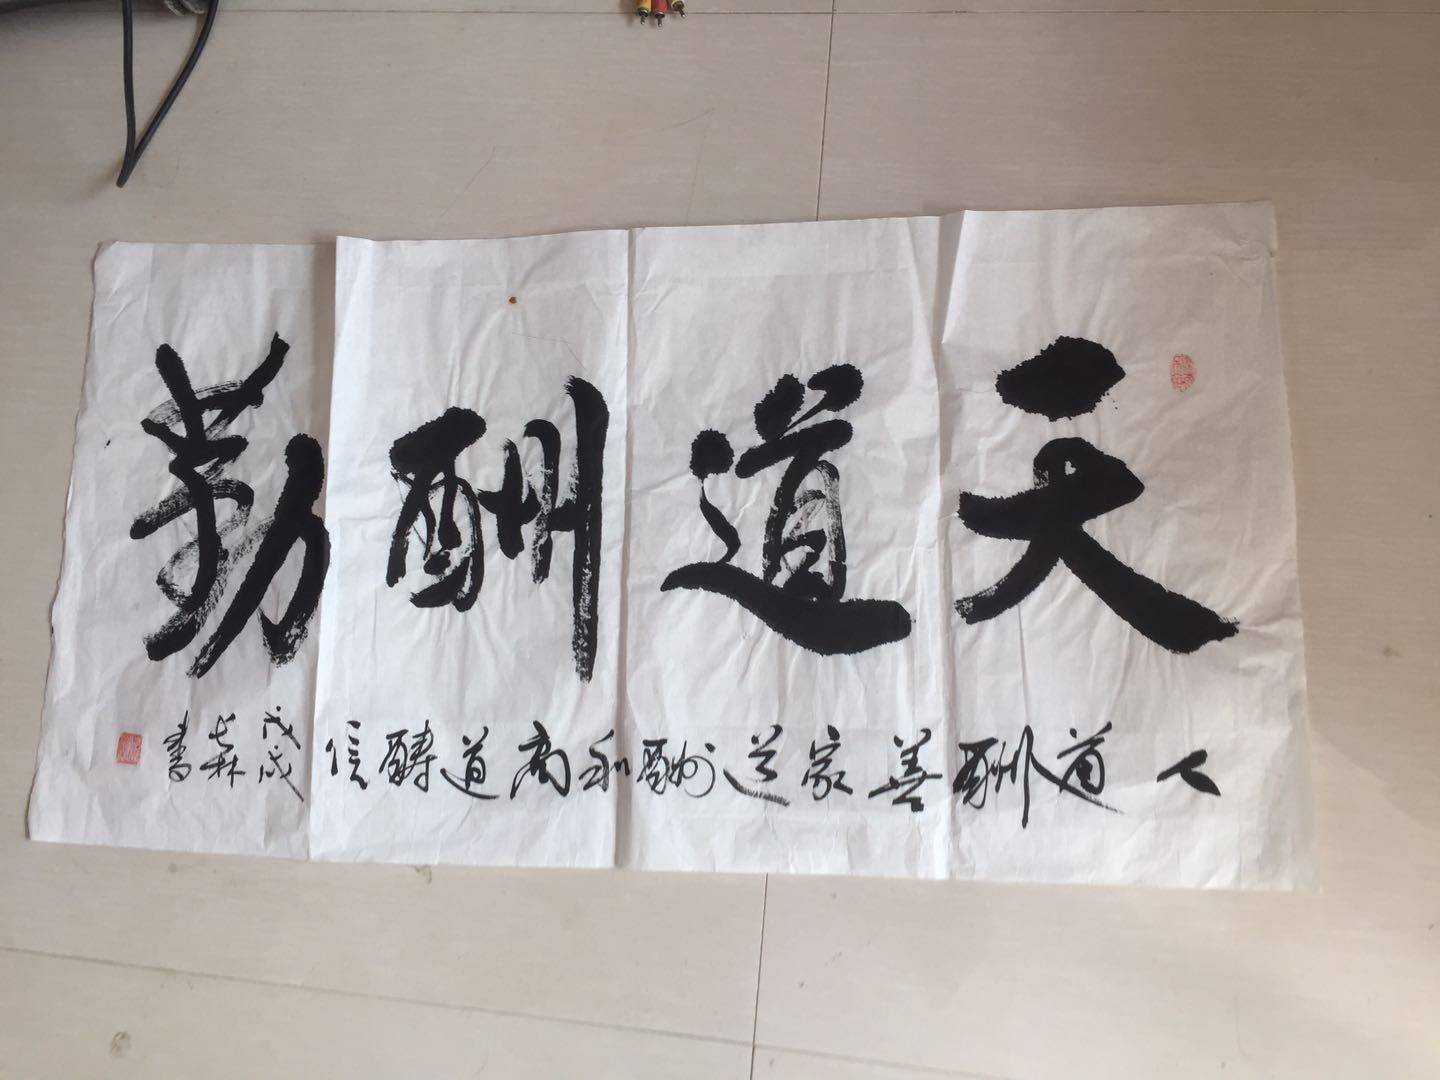 天道酬勤
人道酬善家道酬和商道醻信
戊戌
森
書